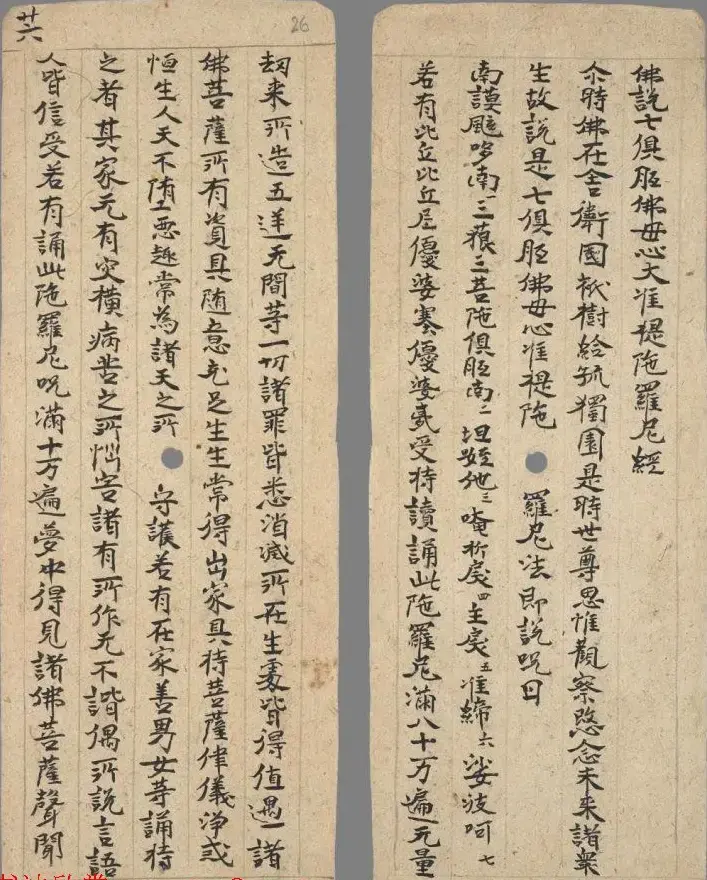 佛說七俱胝佛母心大准提陁羅尼經
尒時佛在舍衛國祇樹給孤獨園是時世尊思惟觀察愍念未來諸衆
生故說是七俱胝佛母心准提陁 羅尼法即說呪曰
南謨颯哆南一三藐三菩陁俱胝南二怛姪他三唵折戾四主戾五准締六娑波呵七
若有比丘比丘尼優婆塞優婆夷受持讀誦此陁羅尼滿八十万遍无量
26
廿六
劫来所造五逆无間等一切諸罪皆悉消滅所在生處皆得值遇諸
佛菩薩所有資具随意充足生生常得出家具持菩薩律儀淨戒
恒生人天不墮惡趣常為諸天之所 守護若有在家善男女等誦持
之者其家无有灾横病苦之所惱害諸有所作无不諧偶所說言語
人皆信受若有誦此陁羅尼呪滿十万遍夢中得見諸佛菩薩聲聞